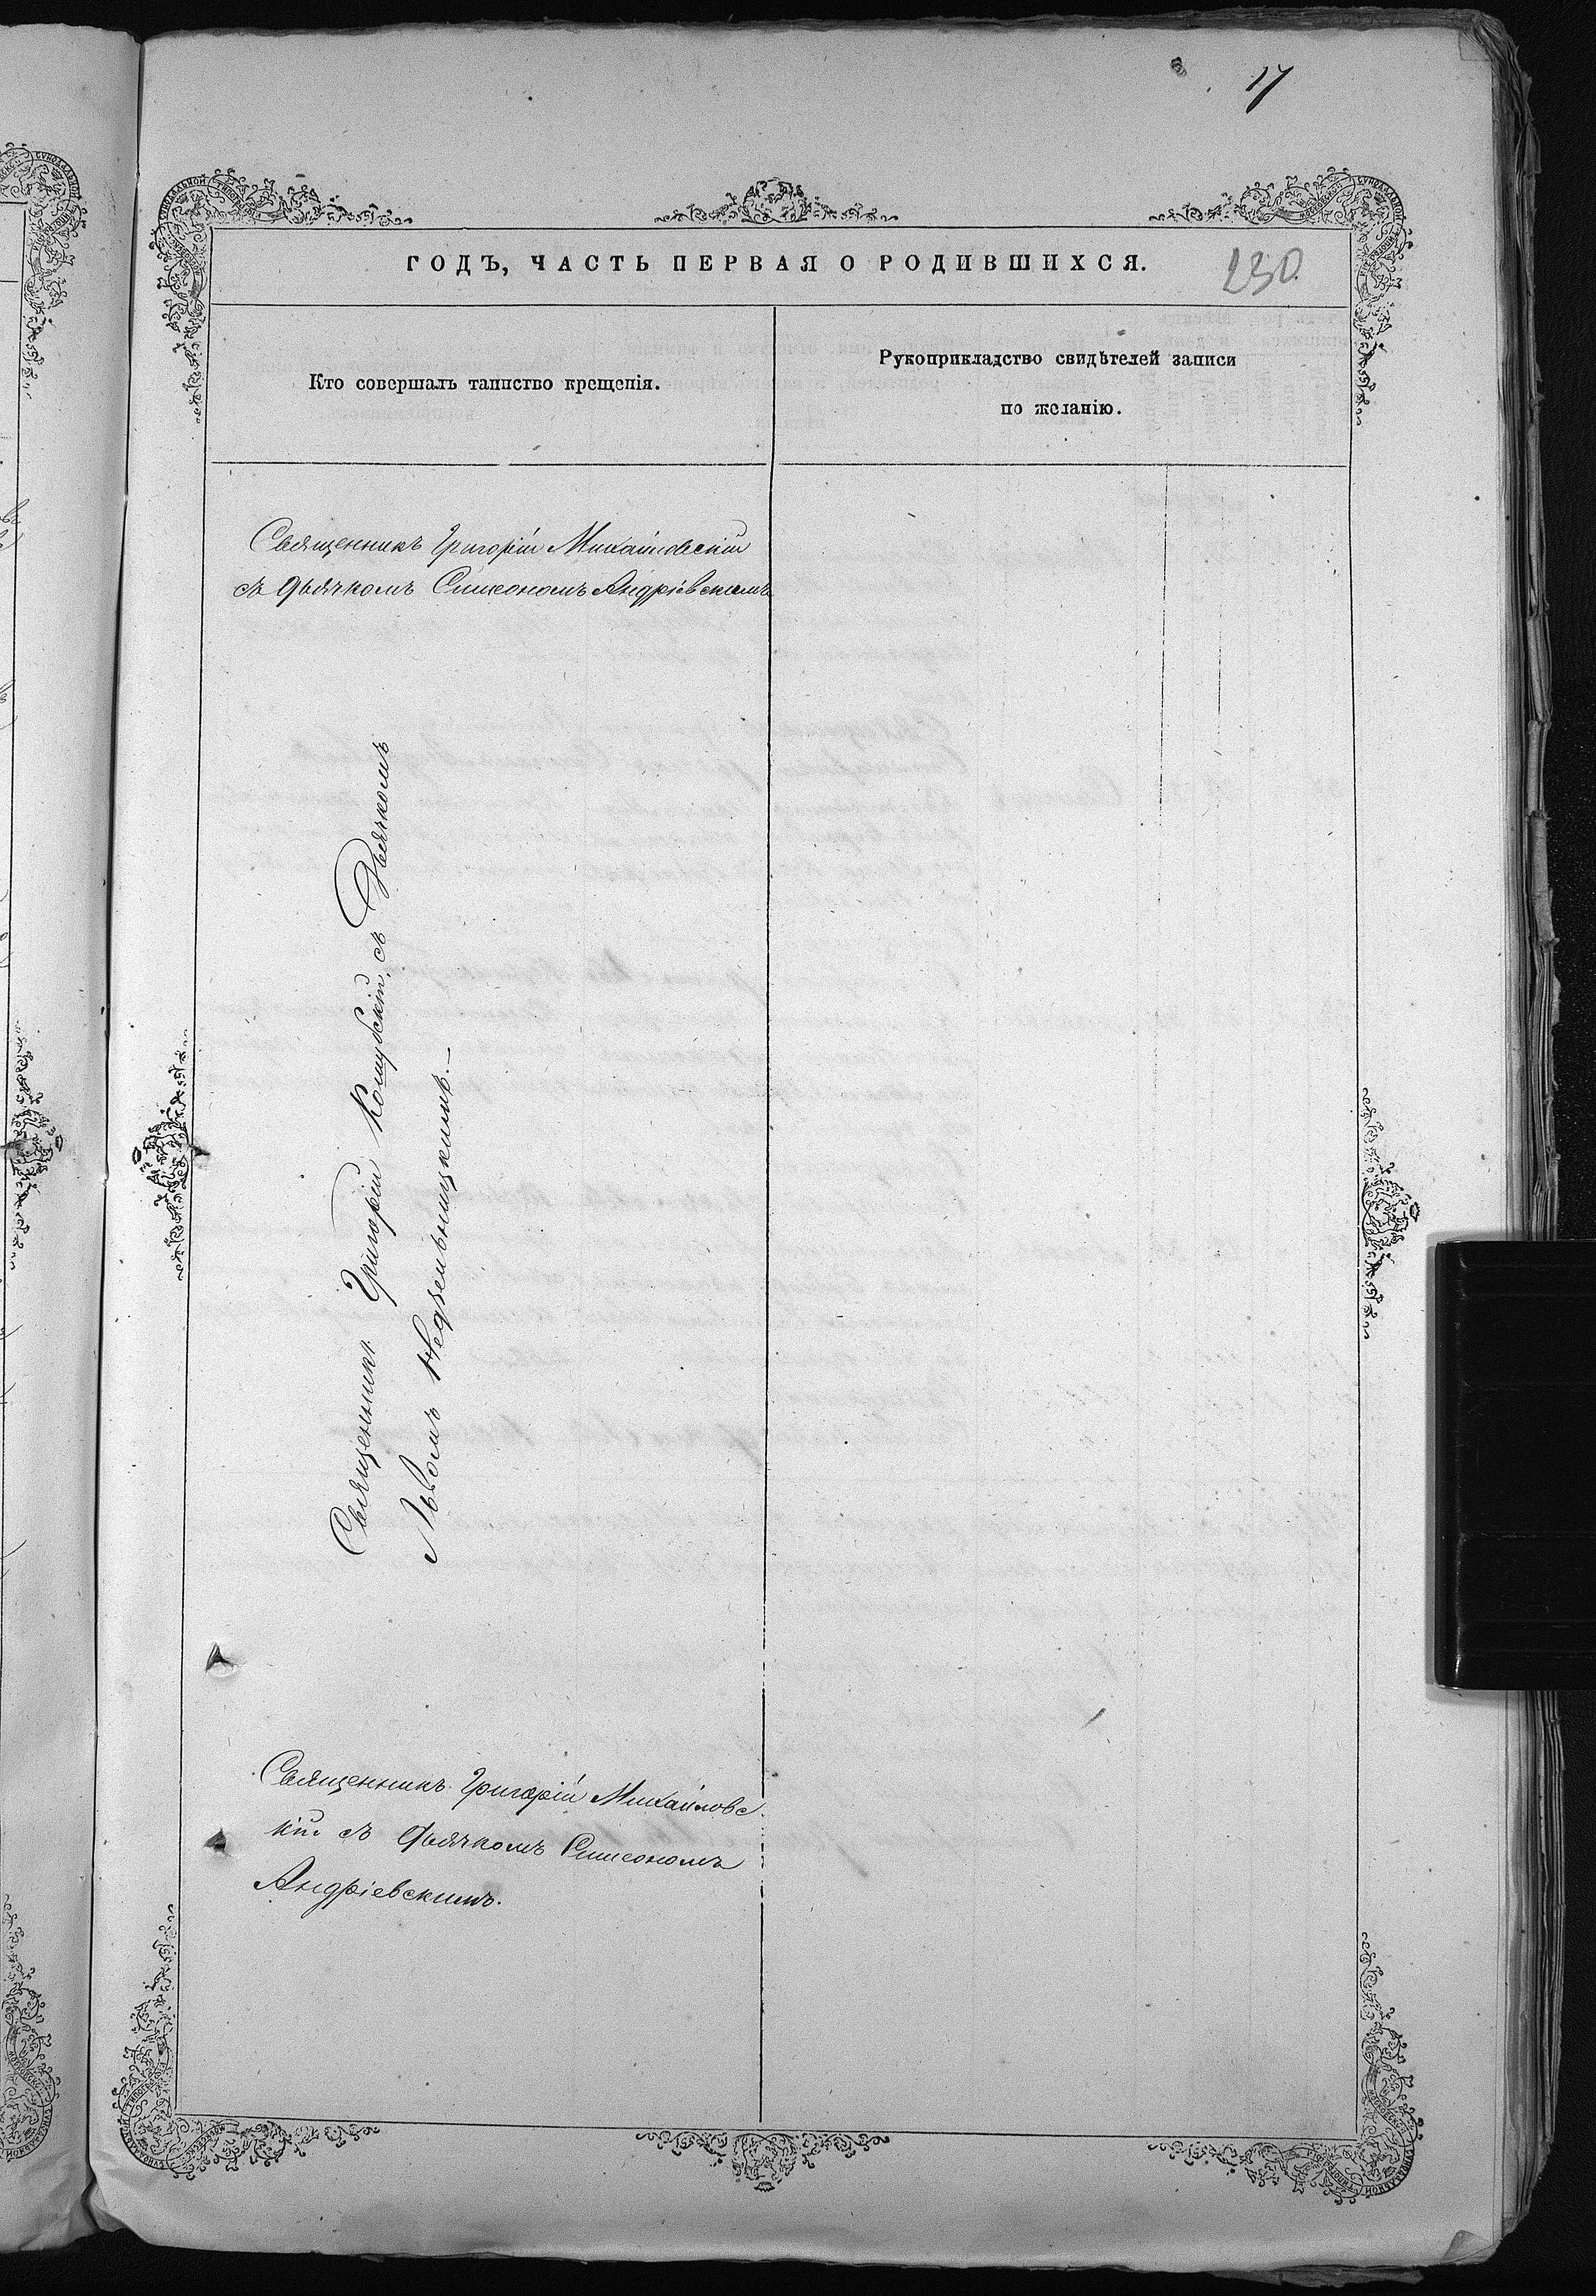 17
ГОДЪ, ЧАСТЬ ПЕРВАЯ О РОДИВШИХСЯ.
230
Кто совершалъ таинство крещенія.
Рукоприкладство свидѣтелей записи
по желанію.
Священникъ Григорій Михайловскій
съ дьячкомъ Симеономъ Андріевскимъ
Священникъ Григорій съ Дьячкомъ
Львомъ Недзельницкимъ.—
Священникъ Григорій Михайловс
кій съ дьячкомъ Симеономъ
Андріевскимъ.